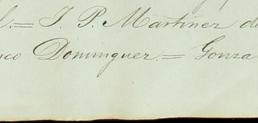 l.= J. P. Martinez de
nco Dominguez.= Gonza